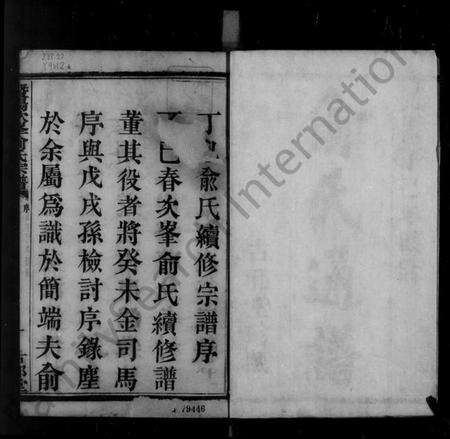 丁巳俞氏續修宗譜序
丁巳春次峯俞氏續修譜
董其役者將癸未金司馬
序與戊戌孫檢討序錄塵
於余屬爲識於簡端夫俞
序
79446
International